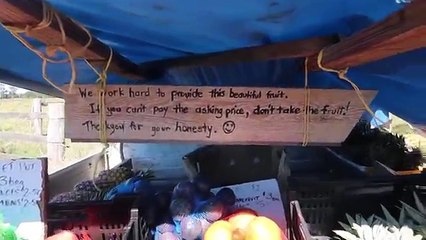 We work hard to provide this beautiful fruit.
If you can't pay the asking price, don't take the fruit!
Thankyou for your honesty. ☺